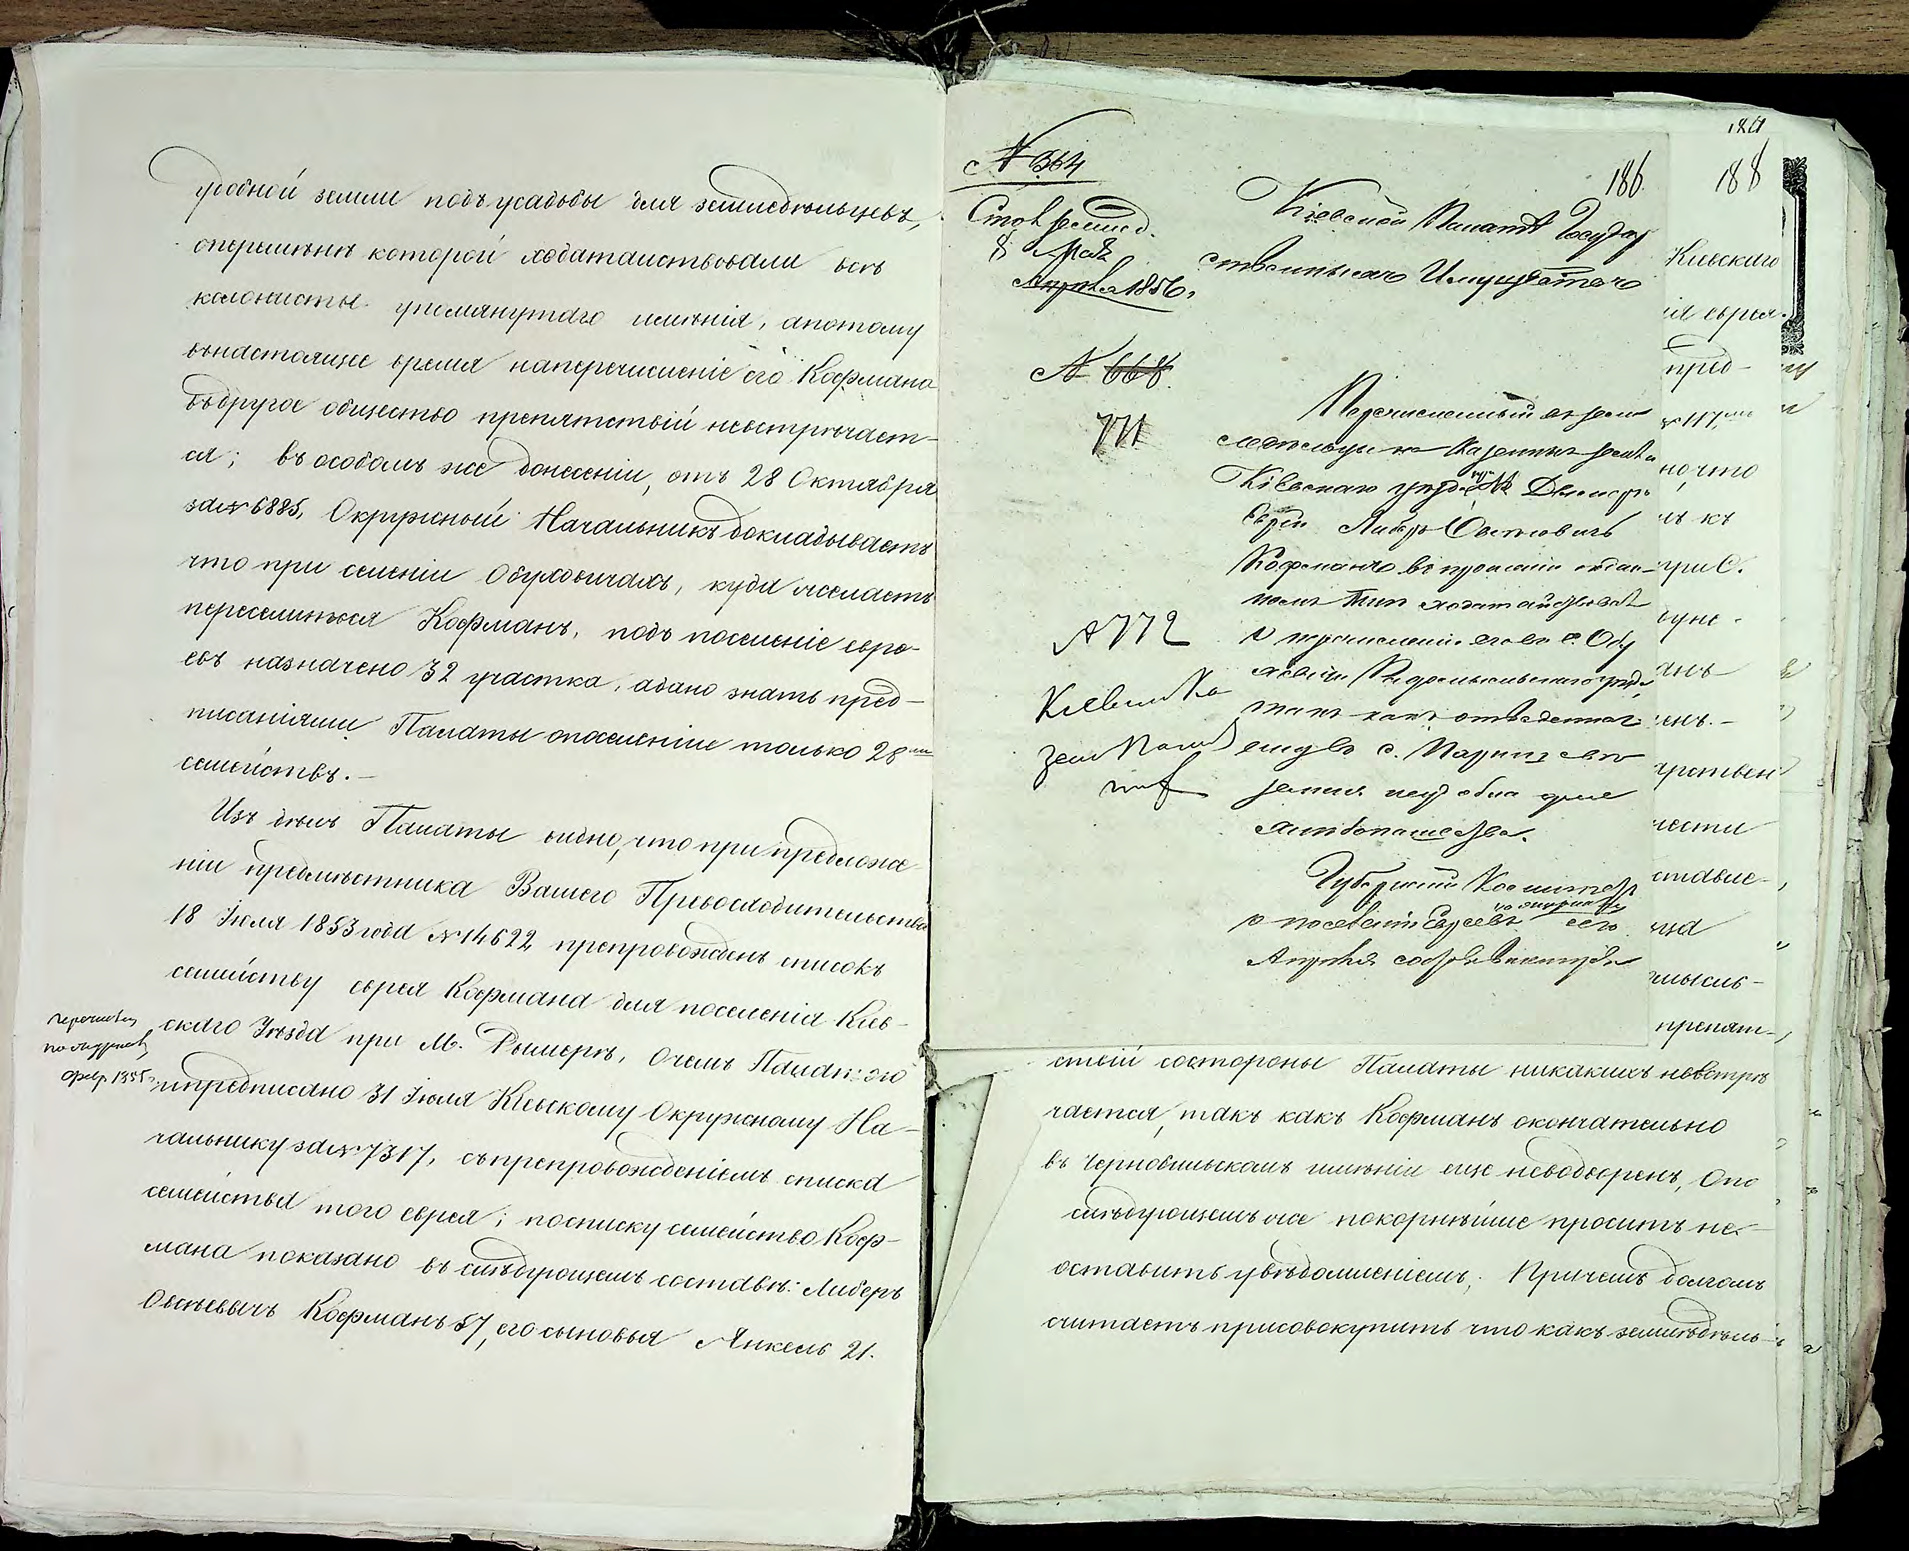 удобной земли подъ усадьбы для земледѣльцевъ,
оперемѣнѣ которой ходатайствовали всѣ
колонисты упомянутаго имѣнія, апотому
внастоящее время наперечисленіе его Кофмана
въдругое общество препятствій невстрѣчает-
ся; въ особомъ же донесеніи, отъ 28 Октября
за № 6885, Окружный Начальникъ докладываетъ
что при селеніи Обуховичахъ, куда желаетъ
переселиться Кофманъ, подъ поселеніе евре-
евъ назначено 32 участка, адано знать пред-
писаніями Палаты опоселеніи только 28ми
семействъ.-
Изъ дѣлъ Палаты видно, что при предложе-
ніи предмѣстника Вашего Превосходительства
18 Іюля 1853 года № 14622 препровожденъ списокъ
семейству еврея Кофмана для поселенія Кіев-
скаго Уѣзда при М. Дымерѣ, Очемъ Палатою
ипредписано 31 Іюля Кіевскому Окружному На-
чальнику за № 7317, съпрепровожденіемъ списка
семейства того еврея; посписку семейство Коф-
мана показано въ слѣдующемъ составѣ: Либеръ
Овсѣевичъ Кофманъ 57, его сыновья Янкель 21.
февр. 1855
№ 364
8 Мая
Апрѣля 1856.
№ 668.
771
№ 772
186.
188
Кіевской Палатѣ Государ
ственныхъ Имуществъ
Кіевскаго уѣзда М. Дымера
Еврей Либеръ Овсѣевичъ
Кофманъ въ прошеніи
о перечисленіи его въ с. Обу
ховичи Радомысльскаго уѣзда
такъ какъ отведенная
ему въ с.
земля неудобна для
хлѣбопашества.
Губернскій Комитетъ
о поселеніи Евреевъ
Кіевскаго
ія еврея.
пред-
но, что
ъ къ
при С.
анъ
енъ.-
арствен
чести
ставле-
мысль-
препят-
ствій состороны Палаты никакихъ невстрѣ
чается, такъ какъ Кофманъ окончательно
въ Чернобыльскомъ имѣніи еще неводворенъ, Опо
слѣдующемъ же покорнѣйше проситъ не-
оставить увѣдомленіемъ; Причемъ долгомъ
считаетъ присовокупить что какъ земледѣль-